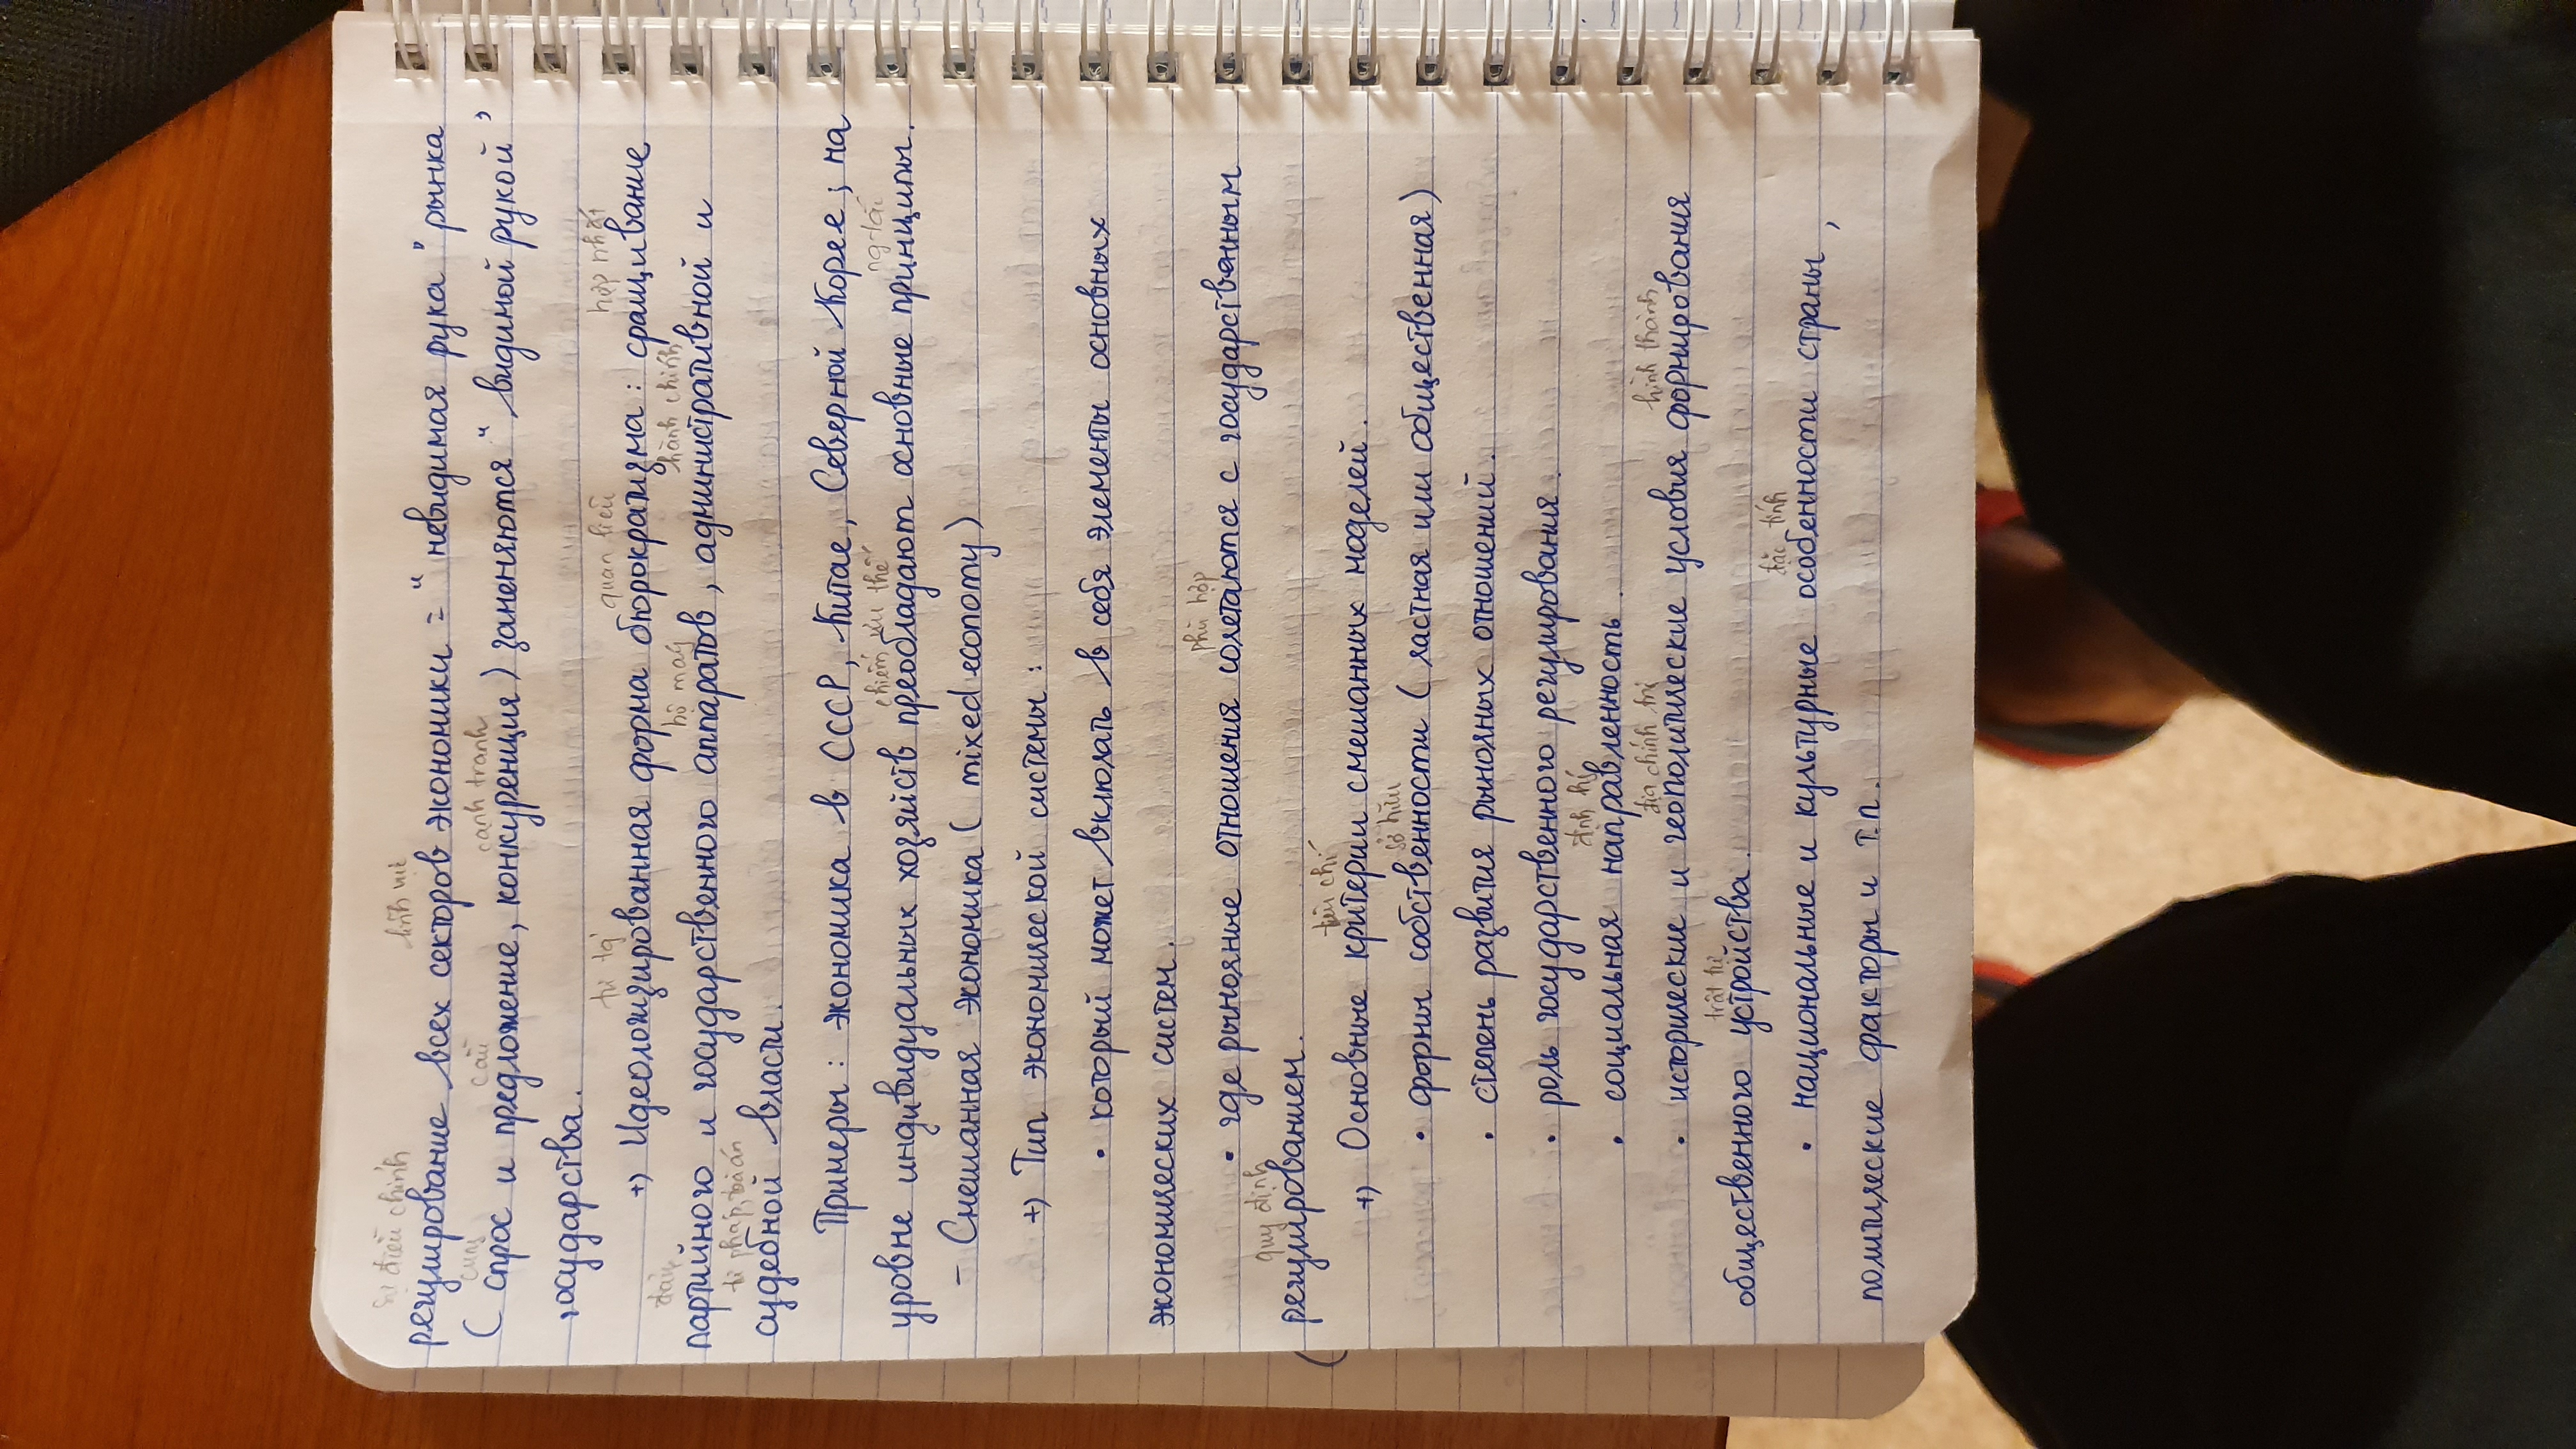 sự điều chỉnh lĩnh vực
регулирование всех секторов экономики = "невидимая рука" рынка
cung cầu cạnh tranh
(спрос и предложение, конкуренция) заменяются "видимой рукой"
государства.
tư tg quan liêu hợp nhất
+) Идеологизированная форма бюрократизма: сращивание
đảng bộ máy hành chính
партийного и государственного аппаратов, административной и
tư pháp, toà án
судебной власти.
Примеры: экономика в СССР, Китае, Северной Корее; на
chiếm ưu thế ng-tắc
уровне индивидуальных хозяйств преобладают основные принципы.
- Смешанная экономика (mixed economy)
+) Тип экономической системы:
• который может включать в себя элементы основных
экономических систем.
phù hợp
• где рыночные отношения сочетаются с государственным
quy định
регулированием.
tiêu chí
+) Основные критерии смешанных моделей.
sở hữu
• формы собственности (частная или общественная)
• степень развития рыночных отношений.
• роль государственного регулирования.
• социальная направленность.
địa chính trị hình thành
• исторические и геополитические условия формирования
trật tự
общественного устройства.
đặc tính
• национальные и культурные особенности страны,
политические факторы и т.п.